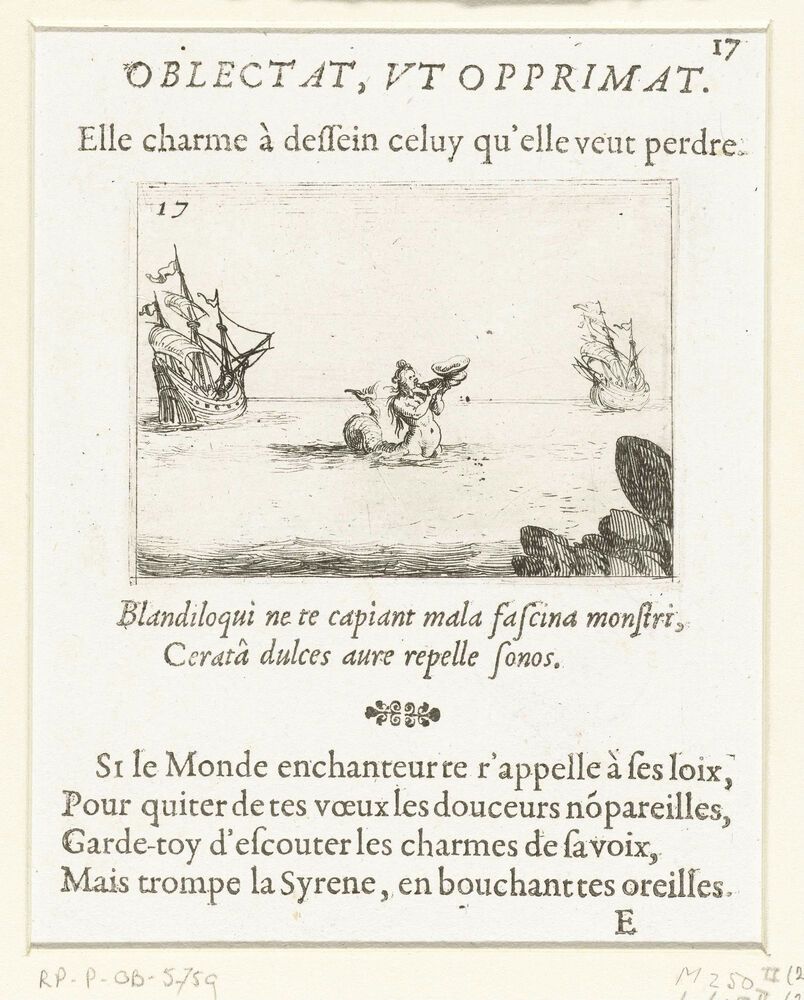 17
OBLECTAT, VT OPPRIMAT.
Elle charme à deſſein celuy qu'elle veut perdre.
17
Blandiloqui ne te capiant mala faſcina monſtri,
Ceratâ dulces aure repelle ſonos.
SI le Monde enchanteur te r'appelle à ſes loix,
Pour quiter de tes vœux les douceurs nõpareilles,
Garde-toy d'eſcouter les charmes de ſa voix,
Mais trompe la Syrene, en bouchant tes oreilles.
E
RP-P-OB-5759
M 250 II (2